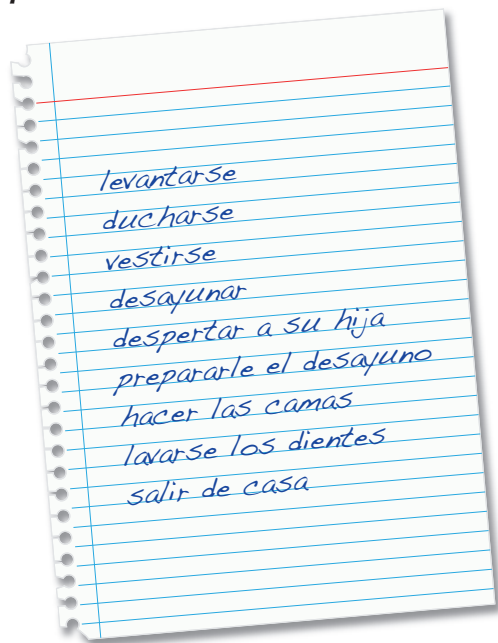 levantarse
ducharse
vestirse
desayunar
despertar a su hija
prepararle el desayuno
hacer las camas
lavarse los dientes
salir de casa